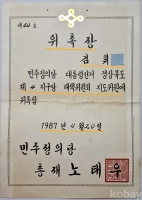 제 호
위촉장
김 회
민주정의당 대통령선거 경상북도
제 4 지구당 대책위원회 지도위원에
위촉함
1987 년 11 월 20 일
민주정의당
총재 노태우
kobay